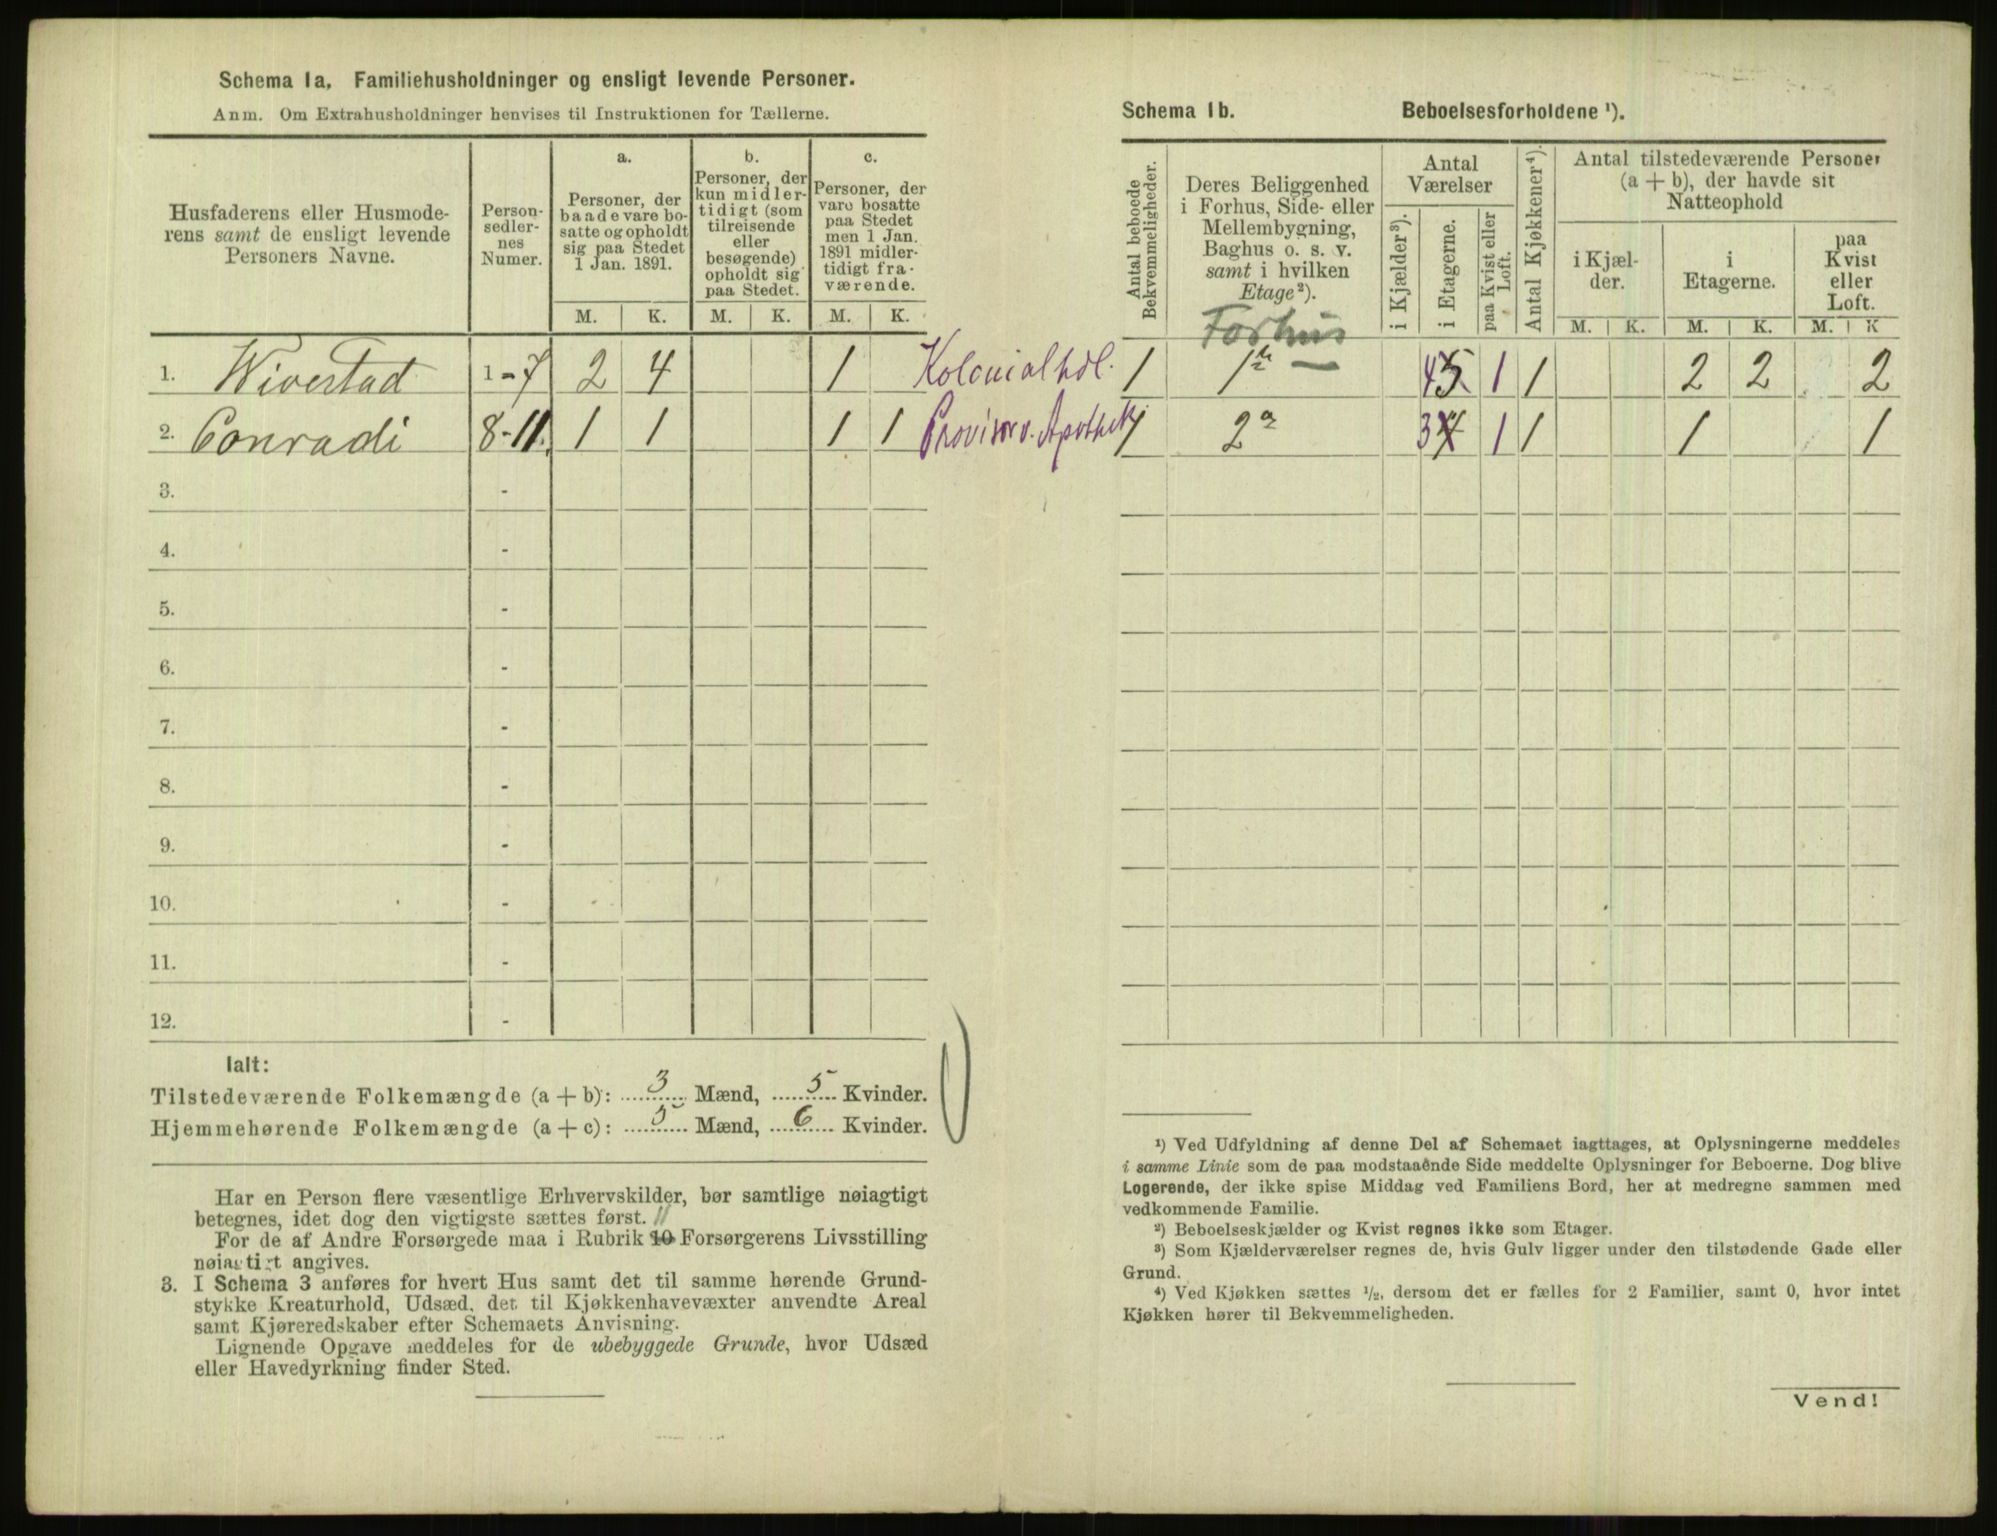 Schema 1a. Familiehusholdninger og ensligt levende Personer.
Anm. Om Extrahusholdninger henvises til Instruktionen for Tællerne.
Husfaderens eller Husmode-
rens samt de ensligt levende
Personers Navne.
Person-
sedler-
nes
Numer.
a.
Personer, der
baade vare bo-
satte og opholdt
sig paa Stedet
1 Jan. 1891.
b.
Personer, der
kun midler-
tidigt (som
tilreisende
eller
besøgende)
opholdt sig
paa Stedet.
c.
Personer, der
vare bosatte
paa Stedet
men 1 Jan.
1891 midler-
tidigt fra-
værende.
M. K. M. K. M. K.
1. Wivestad 1-7 2 4 1 Kolonialhdl.
2. Conradi 8-11. 1 1 1 1 Provisor v. Apothek
3. -
4. -
5. -
6. -
7. -
8. -
9. -
10. -
11. -
12. -
Ialt:
Tilstedeværende Folkemængde (a + b): 3 Mænd, 5 Kvinder.
Hjemmehørende Folkemængde (a + c): 5 Mænd, 6 Kvinder.
Har en Person flere væsentlige Erhvervskilder, bør samtlige nøiagtigt
betegnes, idet dog den vigtigste sættes først.
11
For de af Andre Forsørgede maa i Rubrik 10 Forsørgerens Livsstilling
nøiagtigt angives.
3. I Schema 3 anføres for hvert Hus samt det til samme hørende Grund-
stykke Kreaturhold, Udsæd, det til Kjøkkenhavevæxter anvendte Areal
samt Kjøreredskaber efter Schemaets Anvisning.
Lignende Opgave meddeles for de ubebyggede Grunde, hvor Udsæd
eller Havedyrkning finder Sted.
Schema 1b. Beboelsesforholdene ¹).
Antal beboede
Bekvemmeligheder.
Deres Beliggenhed
i Forhus, Side- eller
Mellembygning,
Baghus o. s. v.
samt i hvilken
Etage²).
Antal
Værelser
i Kjælder³).
i Etagerne.
paa Kvist eller
Loft.
Antal Kjøkkener⁴).
Antal tilstedeværende Personer
(a + b), der havde sit
Natteophold
i Kjæl-
der.
i
Etagerne.
paa
Kvist
eller
Loft.
M. K. M. K. M. K
Forhus
1 1ste — 45 1 1 2 2 2
1 2a 34 1 1 1 1
¹) Ved Udfyldning af denne Del af Schemaet iagttages, at Oplysningerne meddeles
i samme Linie som de paa modstaaende Side meddelte Oplysninger for Beboerne. Dog blive
Logerende, der ikke spise Middag ved Familiens Bord, her at medregne sammen med
vedkommende Familie.
²) Beboelseskjælder og Kvist regnes ikke som Etager.
³) Som Kjælderværelser regnes de, hvis Gulv ligger under den tilstødende Gade eller
Grund.
⁴) Ved Kjøkken sættes ½, dersom det er fælles for 2 Familier, samt 0, hvor intet
Kjøkken hører til Bekvemmeligheden.
Vend!